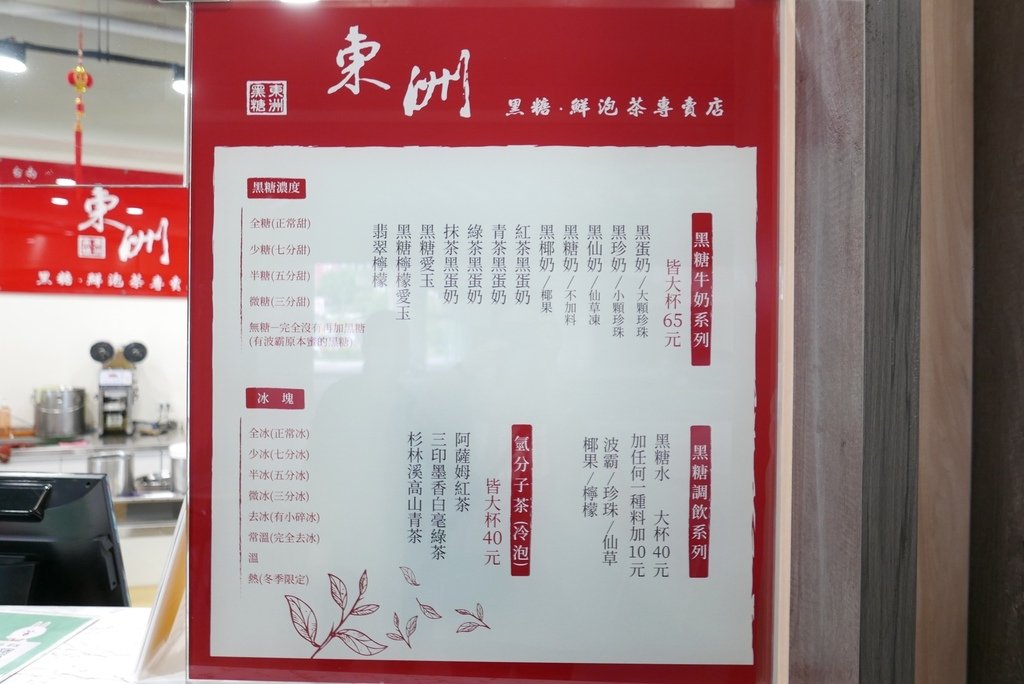 東洲
黑糖
東洲
黑糖·鮮泡茶專賣店
黑糖牛奶系列
皆大杯65元
黑蛋奶/大顆珍珠
黑珍奶/小顆珍珠
黑仙奶/仙草凍
黑糖奶/不加料
黑椰奶/椰果
紅茶黑蛋奶
青茶黑蛋奶
綠茶黑蛋奶
抹茶黑蛋奶
黑糖愛玉
黑糖檸檬愛玉
翡翠檸檬
黑糖調飲系列
黑糖水 大杯40元
加任何一種料加10元
波霸/珍珠/仙草
椰果/檸檬
氫分子茶(冷泡)
皆大杯40元
阿薩姆紅茶
三印墨香白毫綠茶
杉林溪高山青茶
黑糖濃度
全糖(正常甜)
少糖(七分甜)
半糖(五分甜)
微糖(三分甜)
無糖—完全沒有再加黑糖
(有波霸原本蜜的黑糖)
冰塊
全冰(正常冰)
少冰(七分冰)
半冰(五分冰)
微冰(三分冰)
去冰(有小碎冰)
常溫(完全去冰)
溫
熱(冬季限定)
東洲
黑糖·鮮泡茶專賣